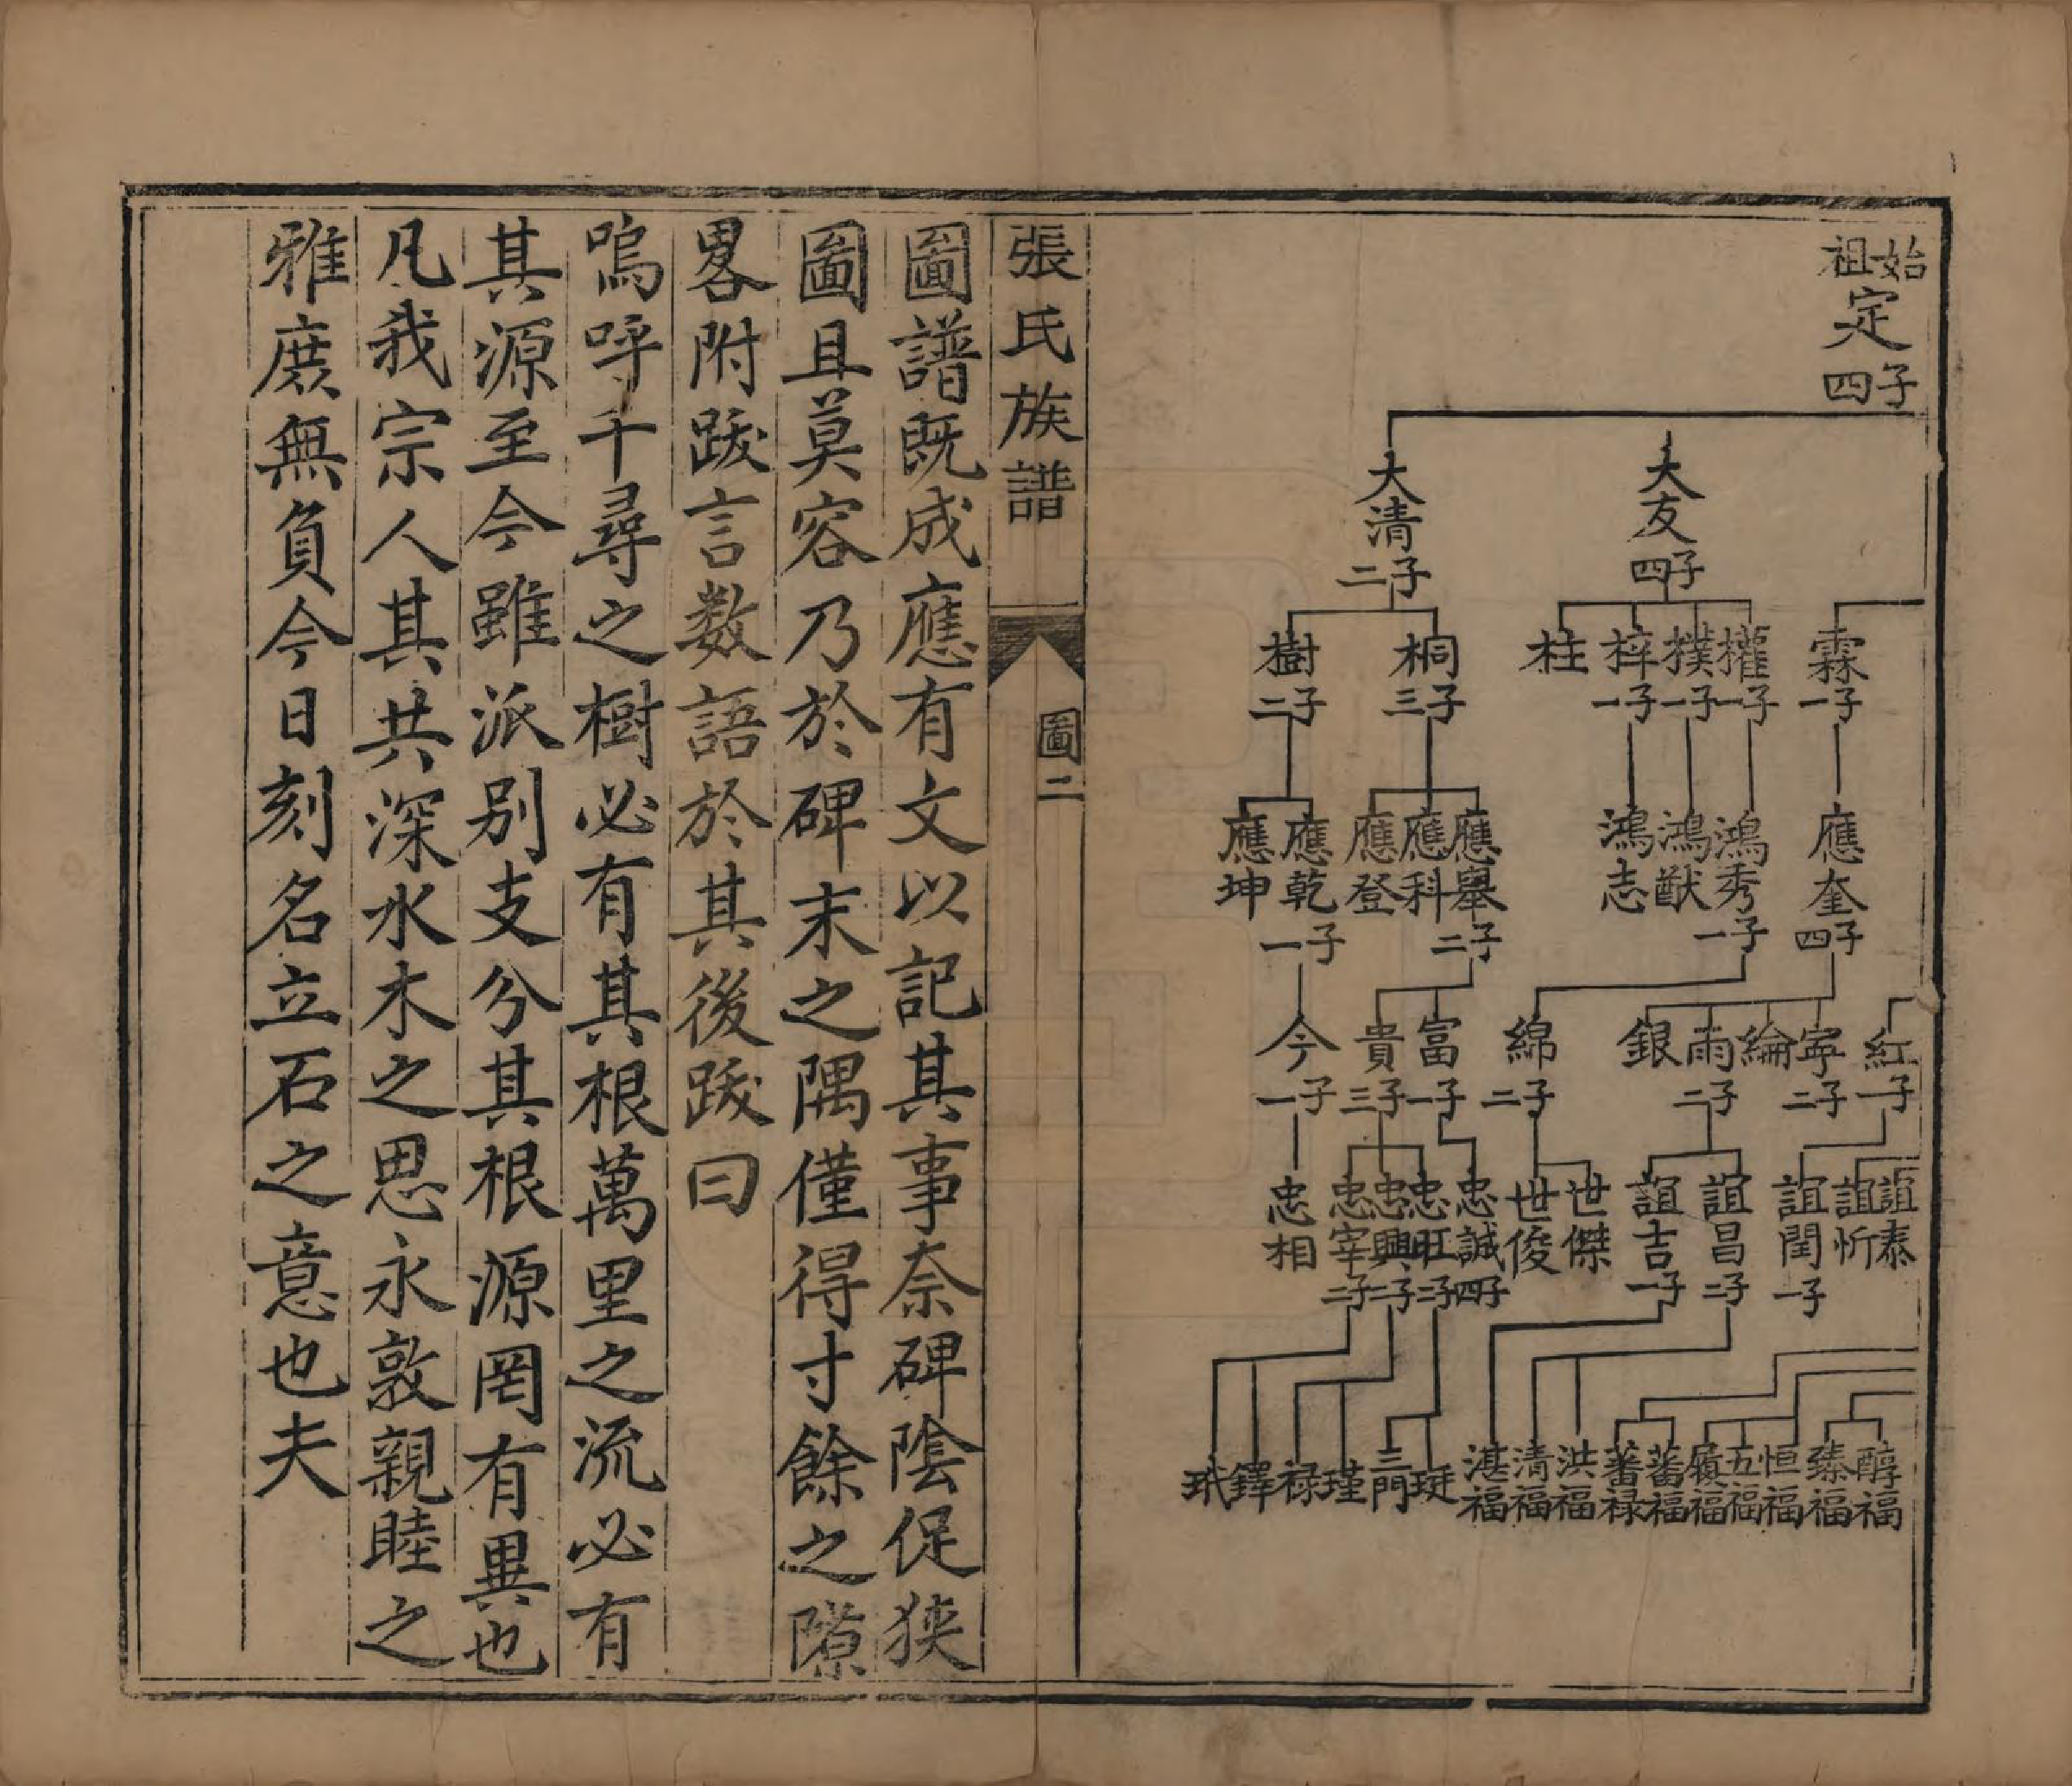 始祖定四子
大友四子
大清二子
霖一子
權一子
樸一子
梓一子
柱
桐三子
樹二子
應奎四子
鴻秀一子
鴻猷
鴻志
應舉二子
應科
應登
應乾一子
應坤
紅一子
寧二子
綸
雨二子
銀
綿二子
富一子
貴三子
今一子
誼泰
誼忻
誼閏一子
誼昌二子
誼吉一子
世傑
世俊
忠誠四子
忠旺二子
忠興二子
忠宰二子
忠相
醇福
臻福
恒福
五福
履福
蕃福
蕃禄
洪福
清福
湛福
珽
三門
瑾
禄
鐸
珉
張氏族譜
圖二
圖譜既成應有文以記其事奈碑陰促狹
圖且莫容乃於碑末之隅僅得寸餘之隙
畧附跋言数語於其後跋曰
嗚呼千尋之樹必有其根萬里之流必有
其源至今雖派别支分其根源罔有異也
凡我宗人其共深水木之思永敦親睦之
雅庶無負今日刻名立石之意也夫